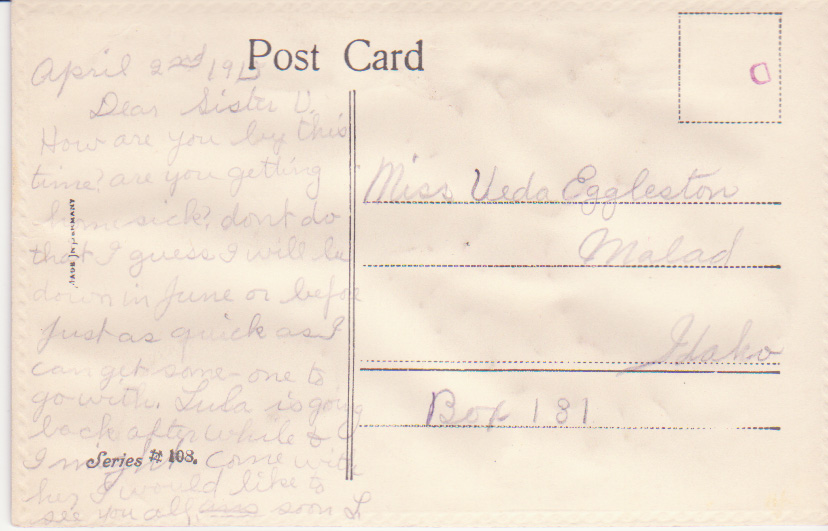 Post Card
April 2nd 1915
Dear Sister V.
How are you by this
time? are you getting
homesick? dont do
that I guess I will be
down in June or befoe
Just as quick as I
can get some-one to
go with. Lula is going
back after while &
I might come with
her I would like to
see you all soon L
MADE IN GERMANY
Series # 108.
Miss Veda Eggleston
Malad
Idaho
Box 181